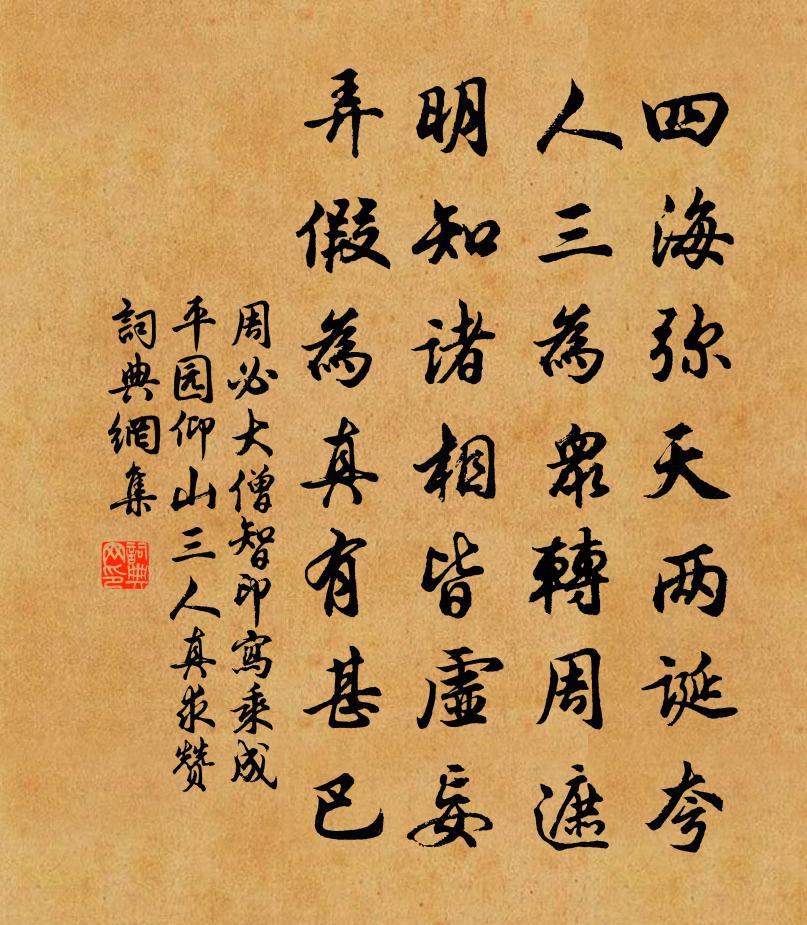 四海弥天两诞夸
人三為衆轉周遮
明知诸相皆虛妄
弄假為真有甚巴
周必大僧智印寫乘成
平园仰山三人真求赞
詞典網集
詞典網印